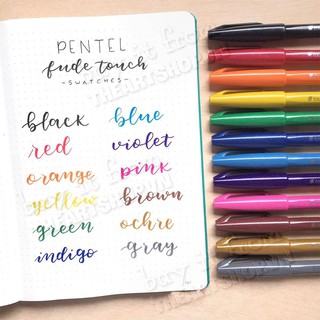 PENTEL
fude touch
-SWATCHES-
black
red
orange
yellow
green
indigo
blue
violet
pink
brown
ochre
gray